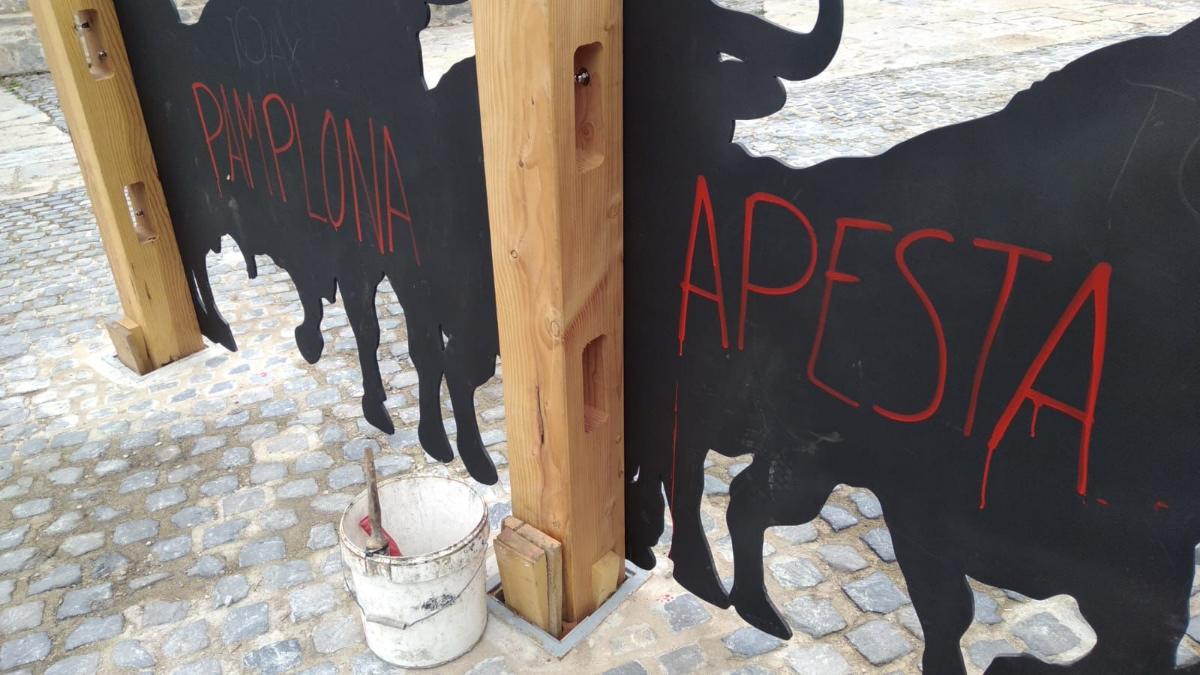 PAMPLONA
APESTA...